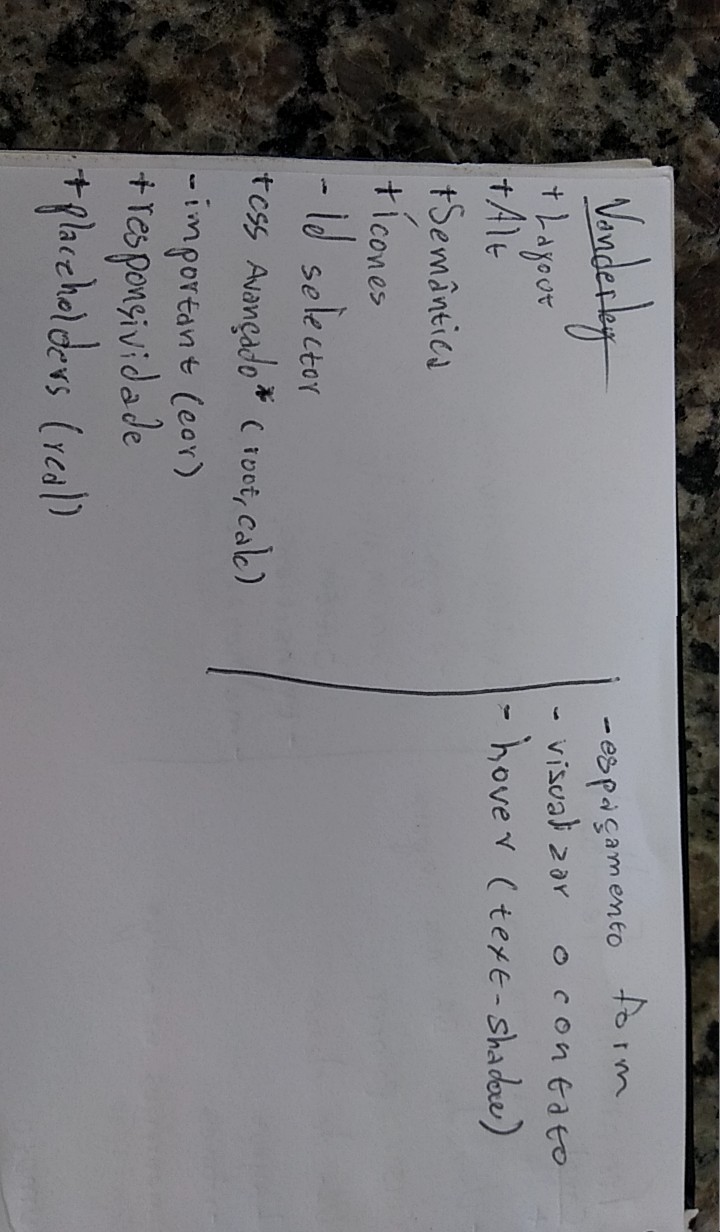 Vanderley
+ Layout
+ Alt
+ Semântica
+ Ícones
- Id selector
+ css Avançado* (root, calc)
- important (cor)
+ responsividade
+ placeholders (real)
- espaçamento form
- visualizar o contato
- hover (text-shadow)